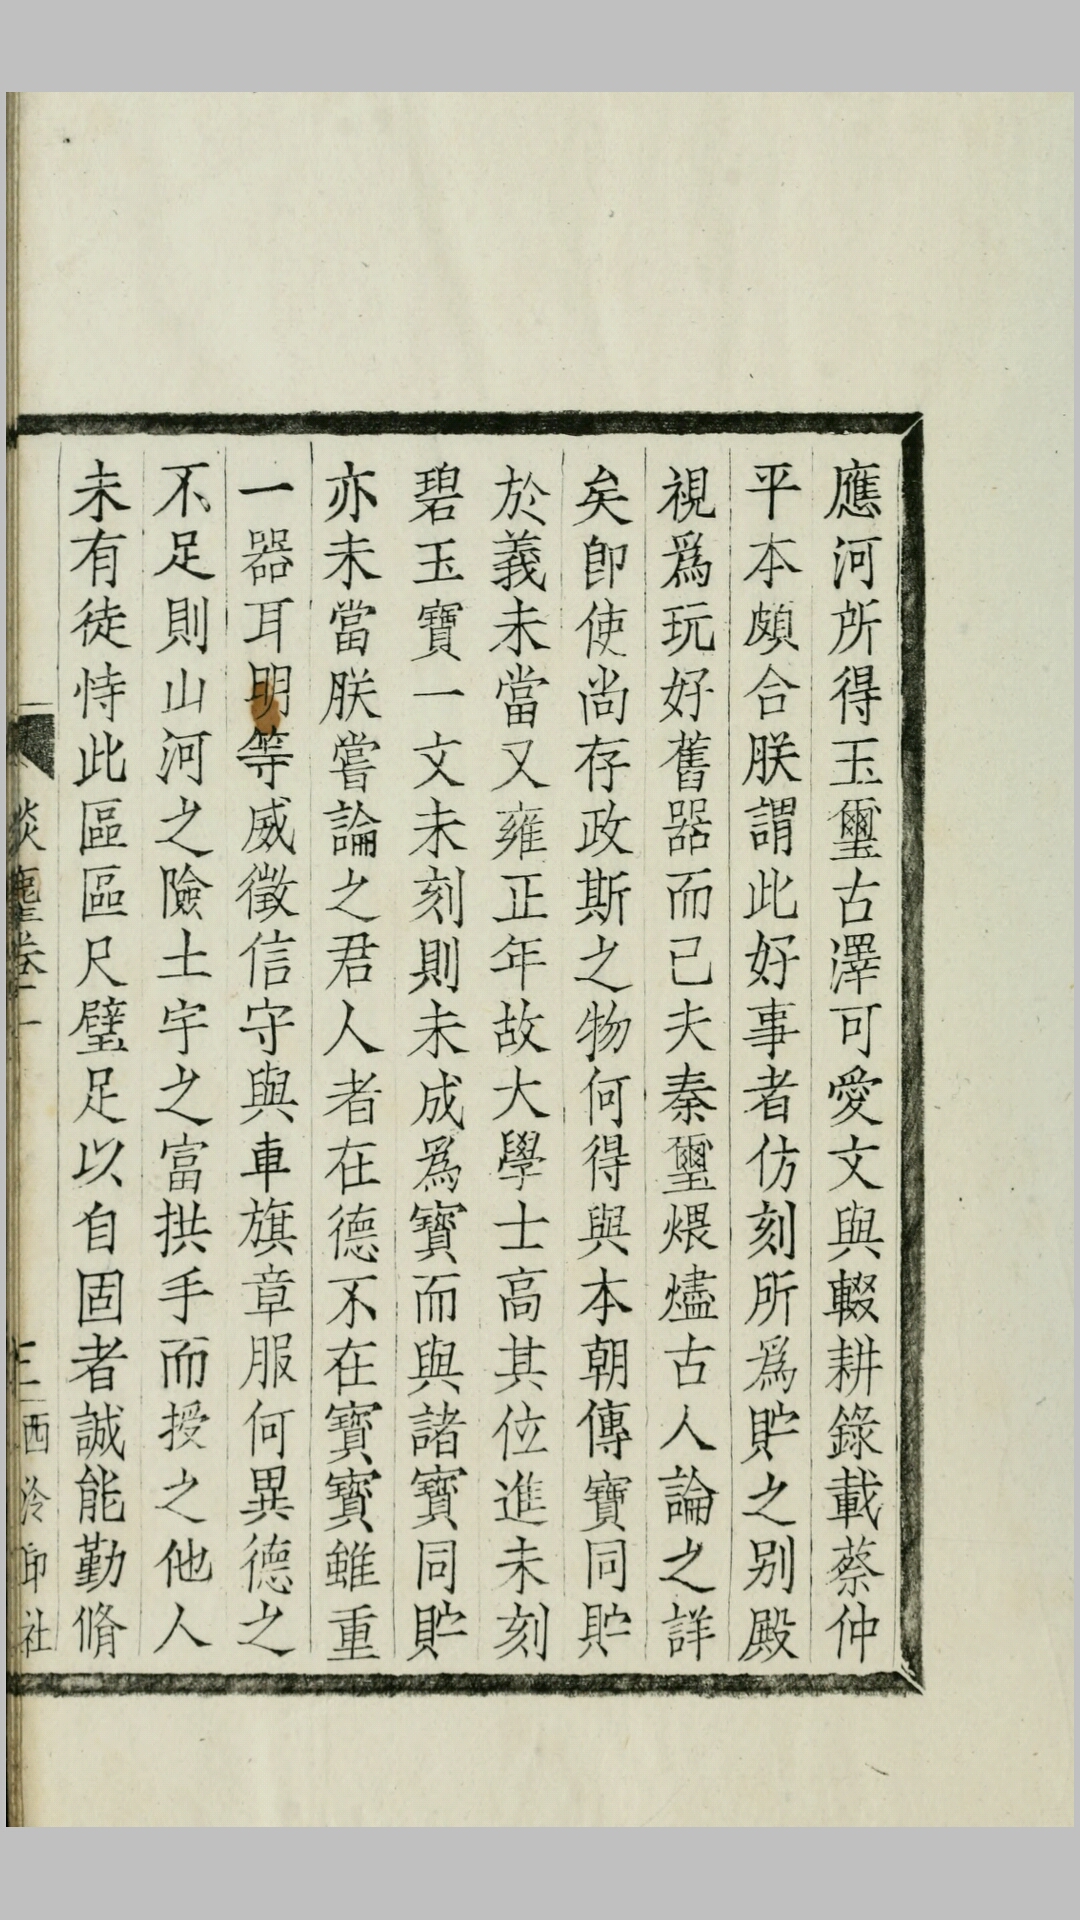 應河所得玉璽古澤可愛文與輟耕錄載蔡仲
平本頗合朕謂此好事者仿刻所爲貯之别殿
視爲玩好舊器而已夫秦璽煨燼古人論之詳
矣卽使尚存政斯之物何得與本朝傳寶同貯
於義未當又雍正年故大學士高其位進未刻
碧玉寶一文未刻則未成爲寳而與諸寳同貯
亦未當朕嘗論之君人者在德不在寳寳雖重
一器耳明等威徵信守與車旗章服何異德之
不足則山河之險土宇之富拱手而授之他人
未有徒恃此區區尺璧足以自固者誠能勤脩
談麈卷一 三 西泠印社